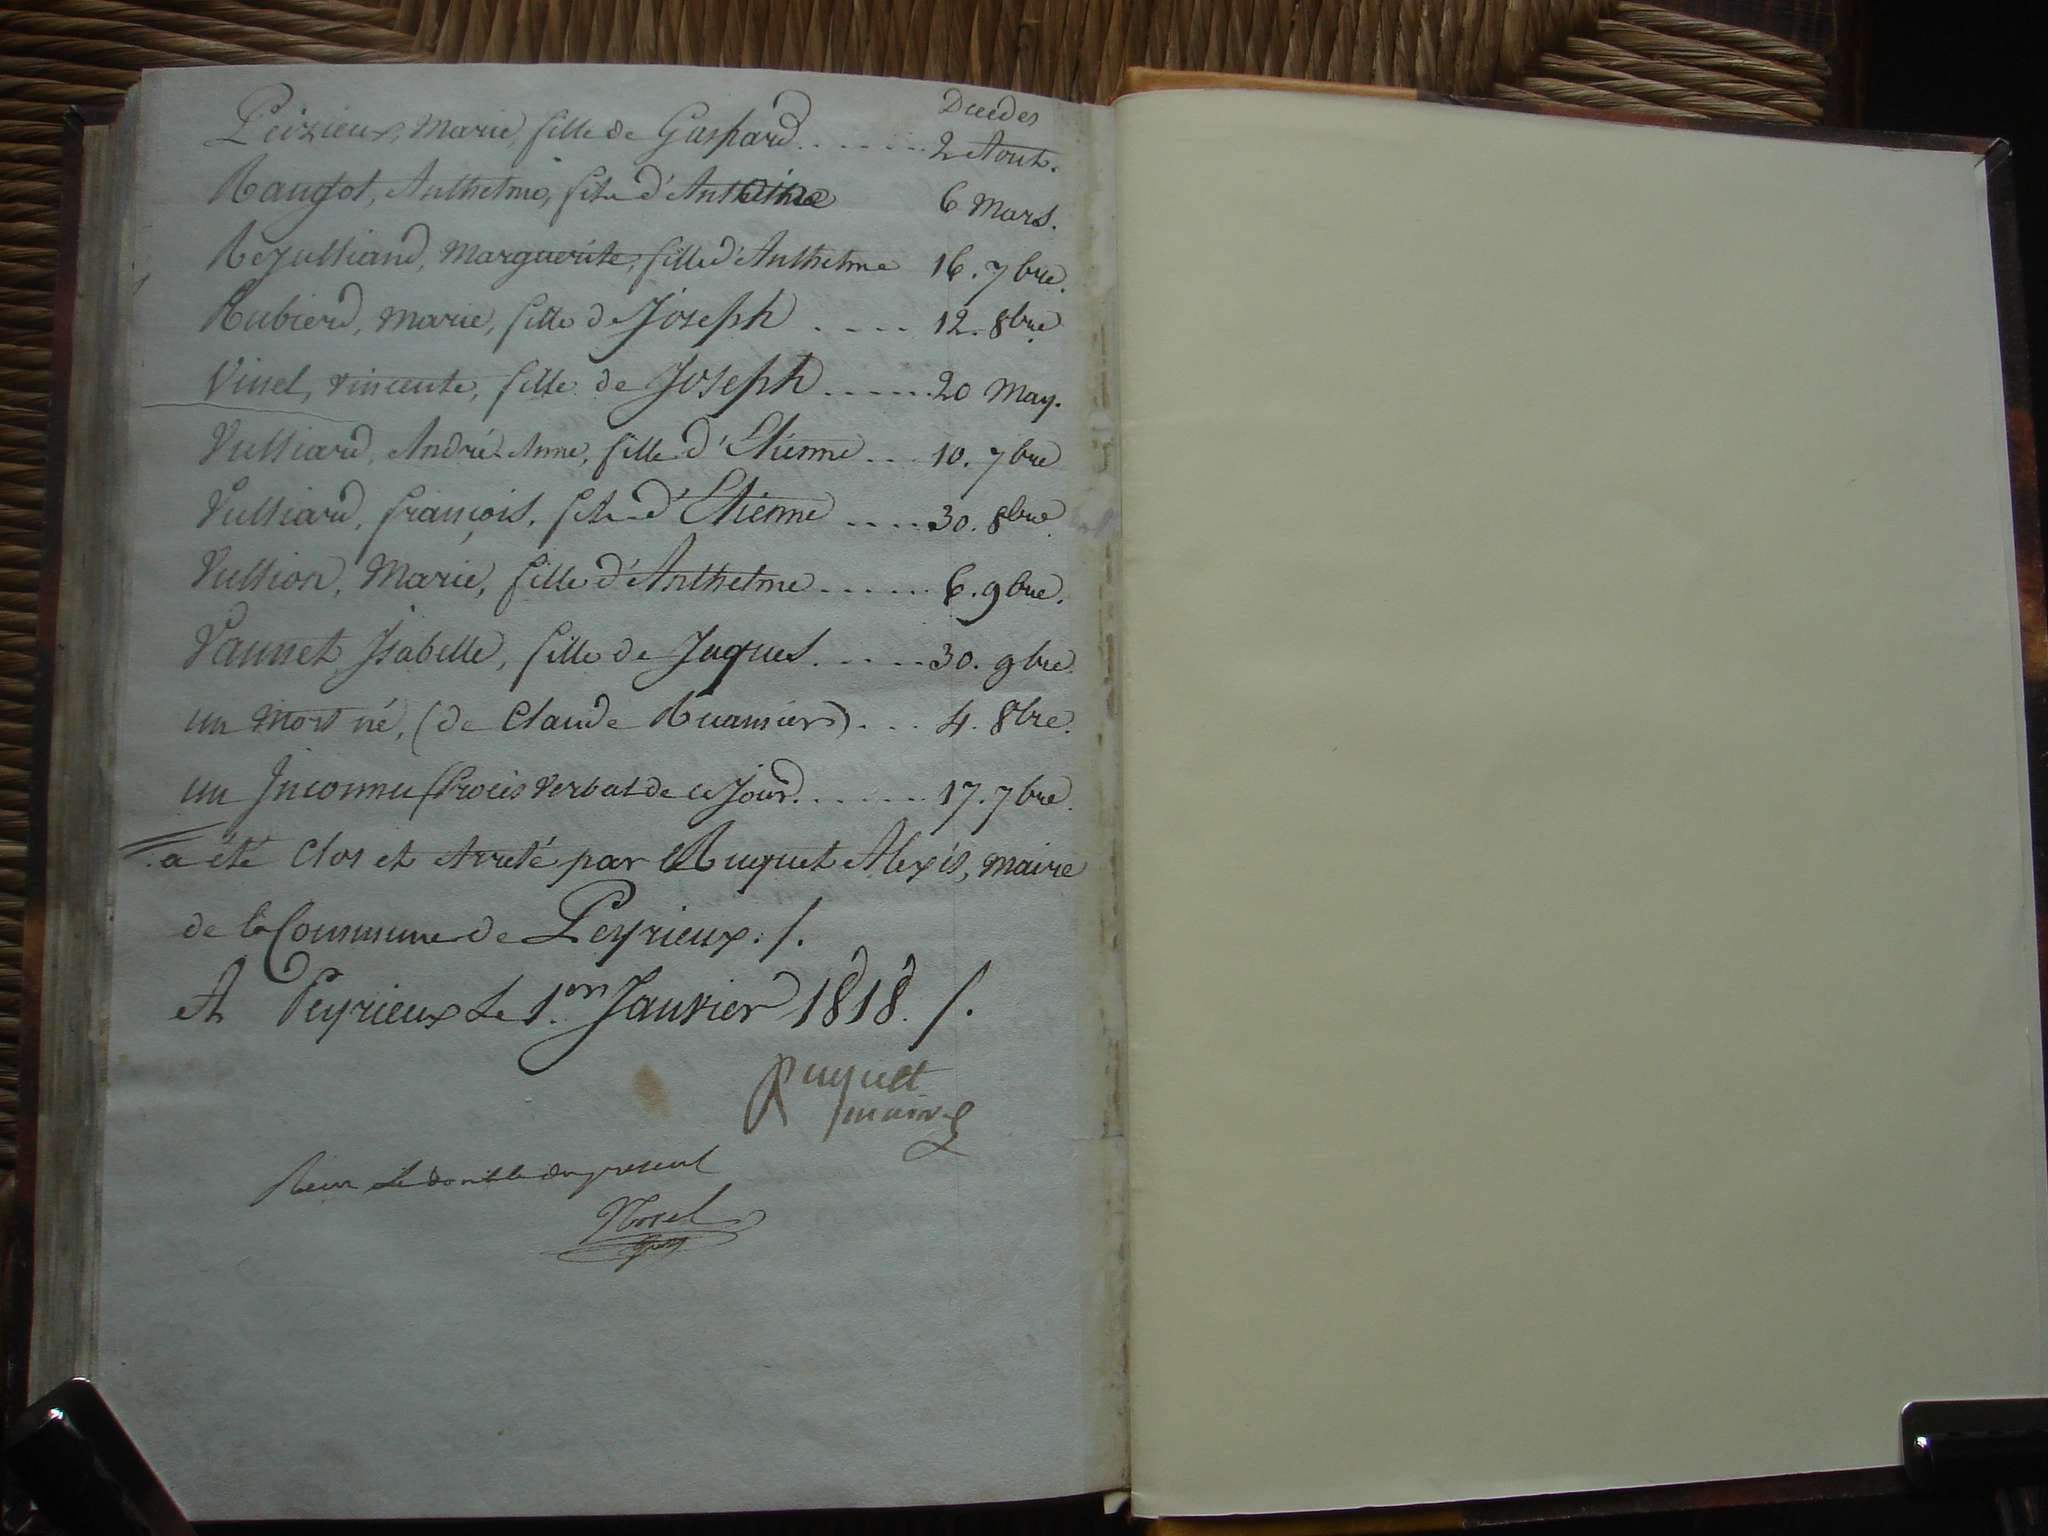 Décédés
Peizieux, Marie, fille de Gaspard ...... 2 Aout.
Raugot, Anthelme, fils d'Anthelme 6 Mars.
Rejulliand, Marguerite, fille d'Anthelme 16. 7bre.
Rubierd, Marie, fille de Joseph .... 12. 8bre.
Vinel, Vincente, fille de Joseph ..... 20 May.
Vulliard, André-Anne, fille d'Etienne ... 10. 7bre
Vulliard, françois, fils d'Etienne .... 30. 8bre.
Vullion, Marie, fille d'Anthelme ...... 6. 9bre.
Vaunet Isabelle, fille de Jaques ..... 30. 9bre.
un Mort né, (de Claude) ... 4. 8bre.
un Inconnu (Procès Verbal de ce Jour ...... 17. 7bre.
a été Clos et Arreté par Ruquet Alexis, Maire
de la Commune de Peyrieux ./.
A Peyrieux Le 1.er Janvier 1818 ./.
Ruquet
maire
Recu Le double du present